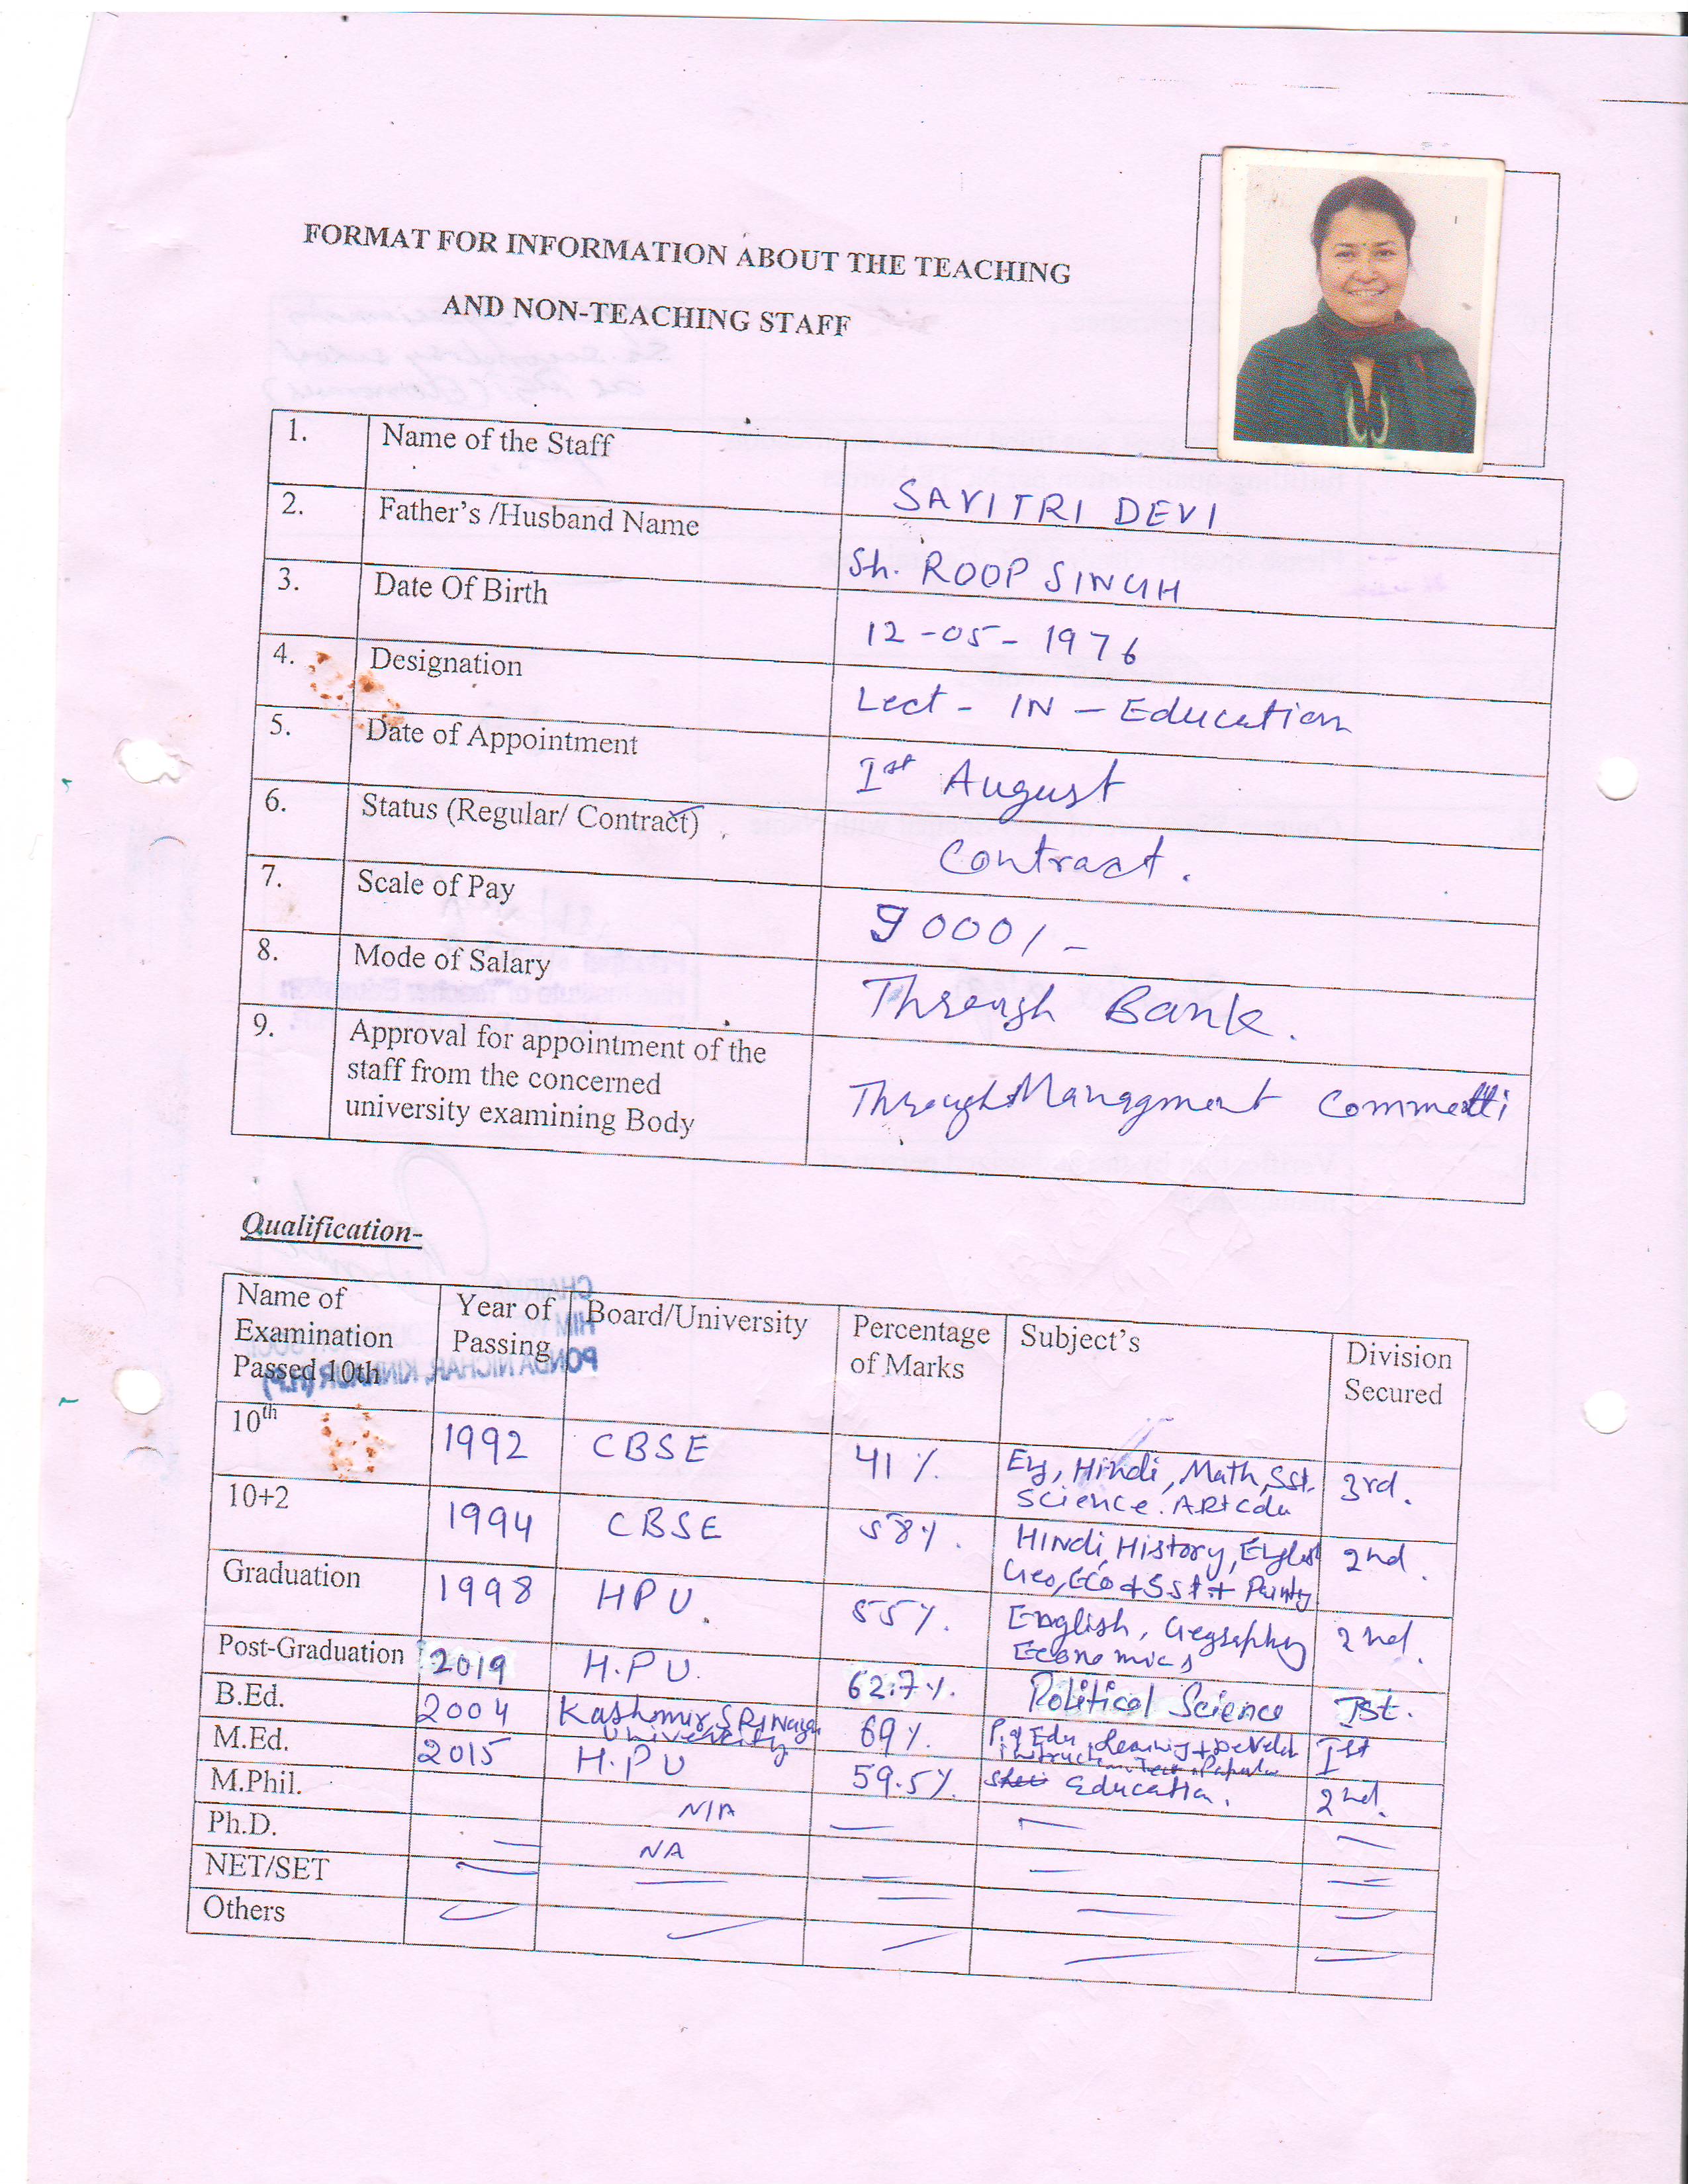 FORMAT FOR INFORMATION ABOUT THE TEACHING
AND NON-TEACHING STAFF
1. Name of the Staff SAVITRI DEVI
2. Father's /Husband Name Sh. ROOP SINGH
3. Date Of Birth 12-05-1976
4. Designation Lect - IN - Education
5. Date of Appointment Ist August
6. Status (Regular/ Contract) Contract.
7. Scale of Pay 9000/-
8. Mode of Salary Through Bank.
9. Approval for appointment of the
staff from the concerned Through Managment Committi
university examining Body
Qualification-
Name of Examination Passed 10th Year of Passing Board/University Percentage of Marks Subject's Division Secured
10th 1992 CBSE 41 %. Eng, Hindi, Math, Sst. 3rd.
Science. ARt
10+2 1994 CBSE 58%. Hindi, History, English 2nd.
Geo, Eco + Sst +
Graduation 1998 HPU. 55%. English, Geography 2nd.
Economics
Post-Graduation 2019 H.P.U. 62.7%. Political Science Ist.
B.Ed. 2004 Kashmir SRINagar 69%. P.of Edu, Learning + Ist
University
M.Ed. 2015 H.P.U 59.5%. Education. 2nd.
M.Phil. N/A
Ph.D. NA
NET/SET
Others